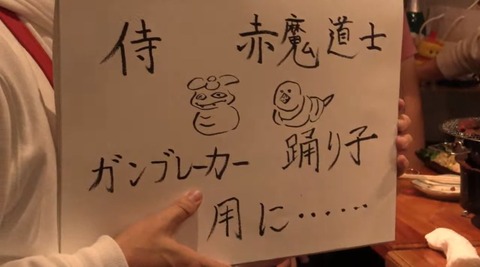 侍　赤魔道士
ガンブレーカー　踊り子
用に……